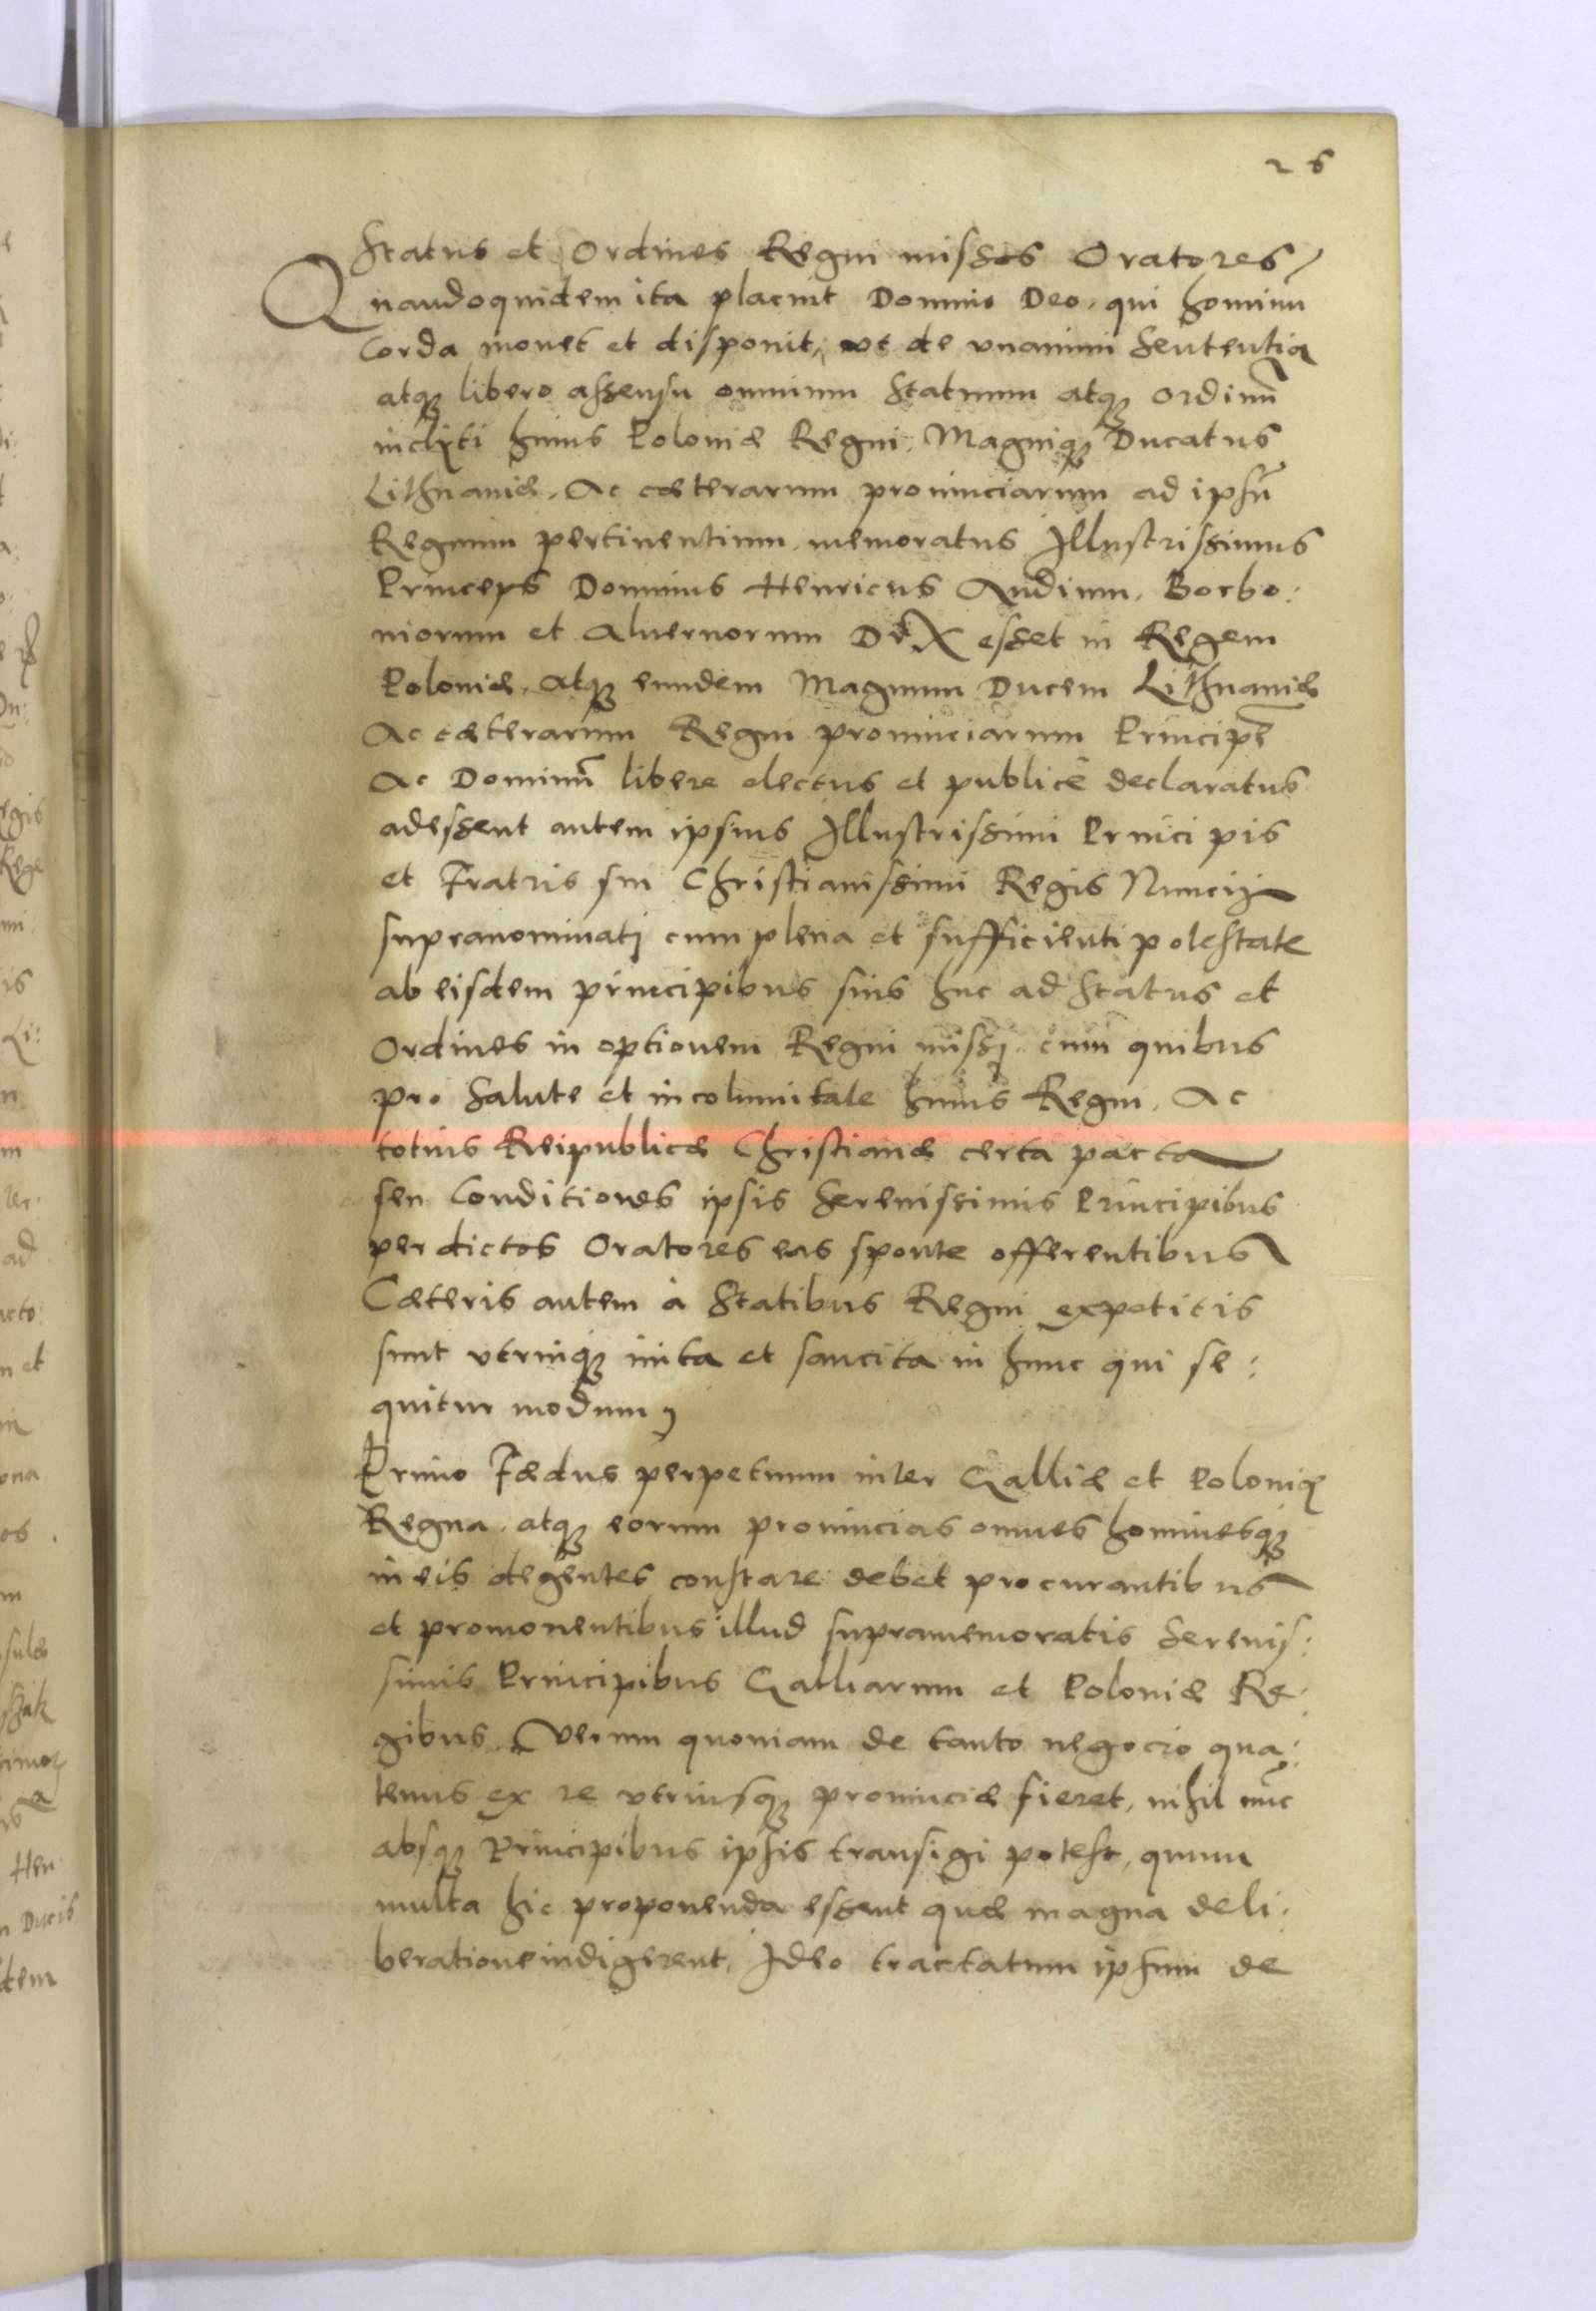 26
Status et Ordines Regni missos Oratores
Quandoquidem ita placuit Domino Deo, qui hominũ
Corda mouet et disponit, vt de vnanimi Sententia
atq; libero assensu omnium Statuum atq; Ordinũ
inclyti huius Poloniæ Regni, Magniq; Ducatus
Lithuaniæ, Ac cæterarum prouinciarum ad ipsũ
Regnum pertinentium, memoratus Illustrissimus
Princeps Dominus Henricus Andium, Borbo:
niorum et Aluernorum DVX esset in Regem
Poloniæ, atq; eundem Magnum Ducem Lithuaniæ
Ac cæterarum Regni prouinciarum Principẽ
Ac Dominũ libere electus et publicè declaratus
adessent autem ipsius Illustrissimi Principis
et Fratris sui Christianissimi Regis Nuncij
supranominatj cum plena et sufficienti potestate
ab eisdem principibus suis huc ad Status et
Ordines in optionem Regni missj, cum quibus
pro Salute et incolumitate huius Regni, Ac
totius Reipublicæ Christianæ certa pacta
seu Conditiones ipsis Serenissimis Principibus
per dictos Oratores eas sponte offerentibus
Cæteris autem à Statibus Regni expetitis
sunt vtrinq; inita et sancita in hunc qui se:
quitur modum,
Primo Fædus perpetuum inter Galliæ et Polonię
Regna, atq; eorum prouincias omnes hominesq;
in eis degentes constare debet procurantibus
et promouentibus illud supramemoratis Serenis:
simis Principibus Galliarum et Poloniæ Re:
gibus. Verum quoniam de tanto negocio qua:
tenus ex re vtriusq; prouinciæ fieret, nihil nũc
absq; Principibus ipsis transigi potest, quum
multa hic proponenda essent quæ magna deli:
beratione indigerent, Ideo tractatum ipsum de